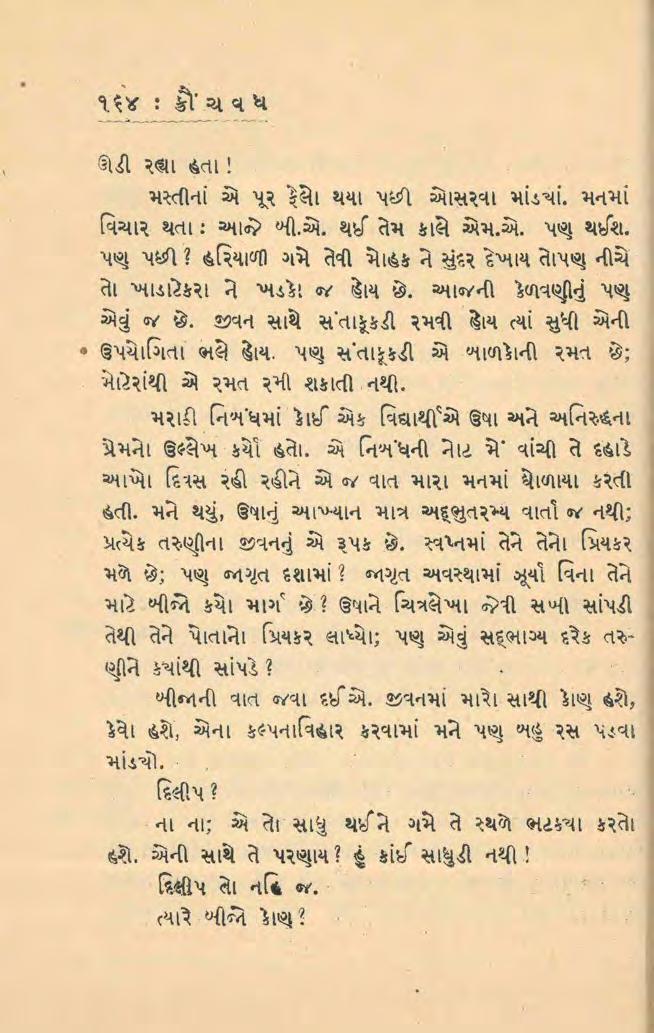 ૧૬૪ : ક્રૌંચવધ
ઊડી રહ્યા હતા !
મસ્તીનાં એ પૂર ફેલો થયા પછી ઓસરવા માંડ્યાં. મનમાં
વિચાર થતા : આજે બી.એ. થઈ તેમ કાલે એમ.એ. પણ થઈશ.
પણ પછી ? હરિયાળી ગમે તેવી મોહક ને સુંદર દેખાય તોપણ નીચે
તો ખાડાટેકરા ને ખડકો જ હોય છે. આજની કેળવણીનું પણ
એવું જ છે. જીવન સાથે સંતાકૂકડી રમવી હોય ત્યાં સુધી એની
ઉપયોગિતા ભલે હોય. પણ સંતાકૂકડી એ બાળકોની રમત છે;
મોટેરાંથી એ રમત રમી શકાતી નથી.
મરાઠી નિબંધમાં કોઈ એક વિદ્યાર્થીએ ઉષા અને અનિરુદ્ધના
પ્રેમનો ઉલ્લેખ કર્યો હતો. એ નિબંધની નોટ મેં વાંચી તે દહાડે
આખો દિવસ રહી રહીને એ જ વાત મારા મનમાં ઘોળાયા કરતી
હતી. મને થયું, ઉષાનું આખ્યાન માત્ર અદ્ભુતરમ્ય વાર્તા જ નથી;
પ્રત્યેક તરુણીના જીવનનું એ રૂપક છે. સ્વપ્નમાં તેને તેનો પ્રિયકર
મળે છે; પણ જાગૃત દશામાં ? જાગૃત અવસ્થામાં ઝૂર્યા વિના તેને
માટે બીજો કયો માર્ગ છે ? ઉષાને ચિત્રલેખા જેવી સખી સાંપડી
તેથી તેને પોતાનો પ્રિયકર લાધ્યો; પણ એવું સદ્ભાગ્ય દરેક તરુ-
ણીને ક્યાંથી સાંપડે ?
બીજાની વાત જવા દઈએ. જીવનમાં મારો સાથી કોણ હશે,
કેવો હશે, એના કલ્પનાવિહાર કરવામાં મને પણ બહુ રસ પડવા
માંડ્યો.
દિલીપ ?
ના ના; એ તો સાધુ થઈને ગમે તે સ્થળે ભટક્યા કરતો
હશે. એની સાથે તે પરણાય ? હું કાંઈ સાધુડી નથી !
દિલીપ તો નહિ જ.
ત્યારે બીજો કોણ ?